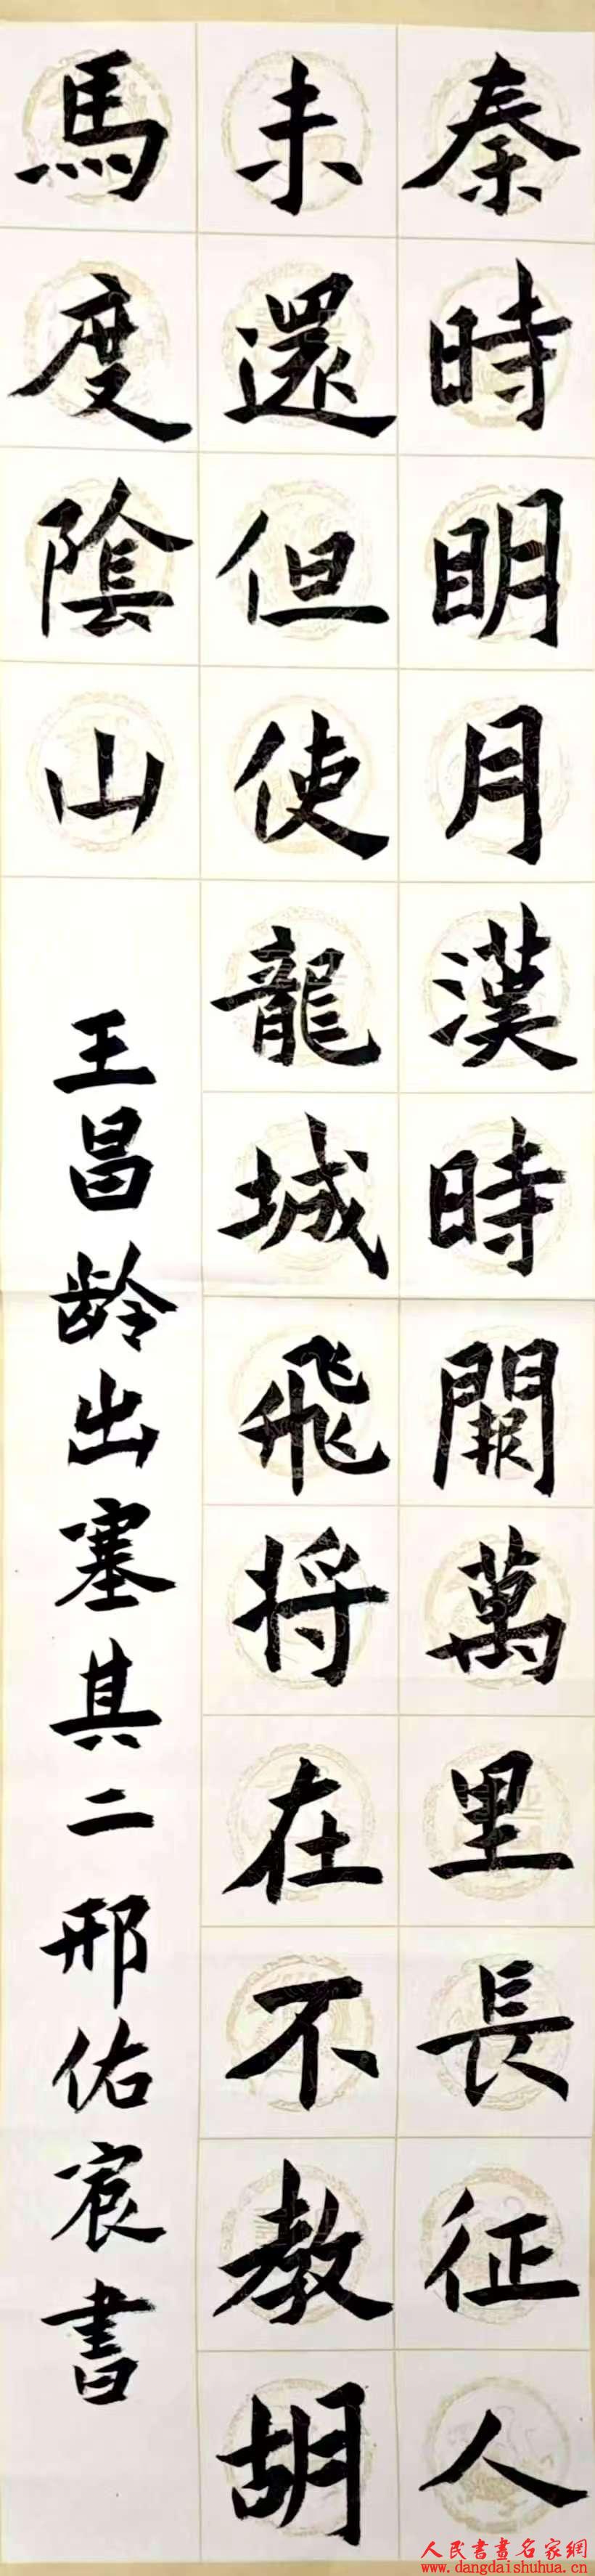 秦時明月漢時関萬里長征人
未還但使龍城飛将在不教胡
馬度陰山
王昌龄出塞其二邢佑宸書
人民書畫名家網
www.dangdaishuhua.cn